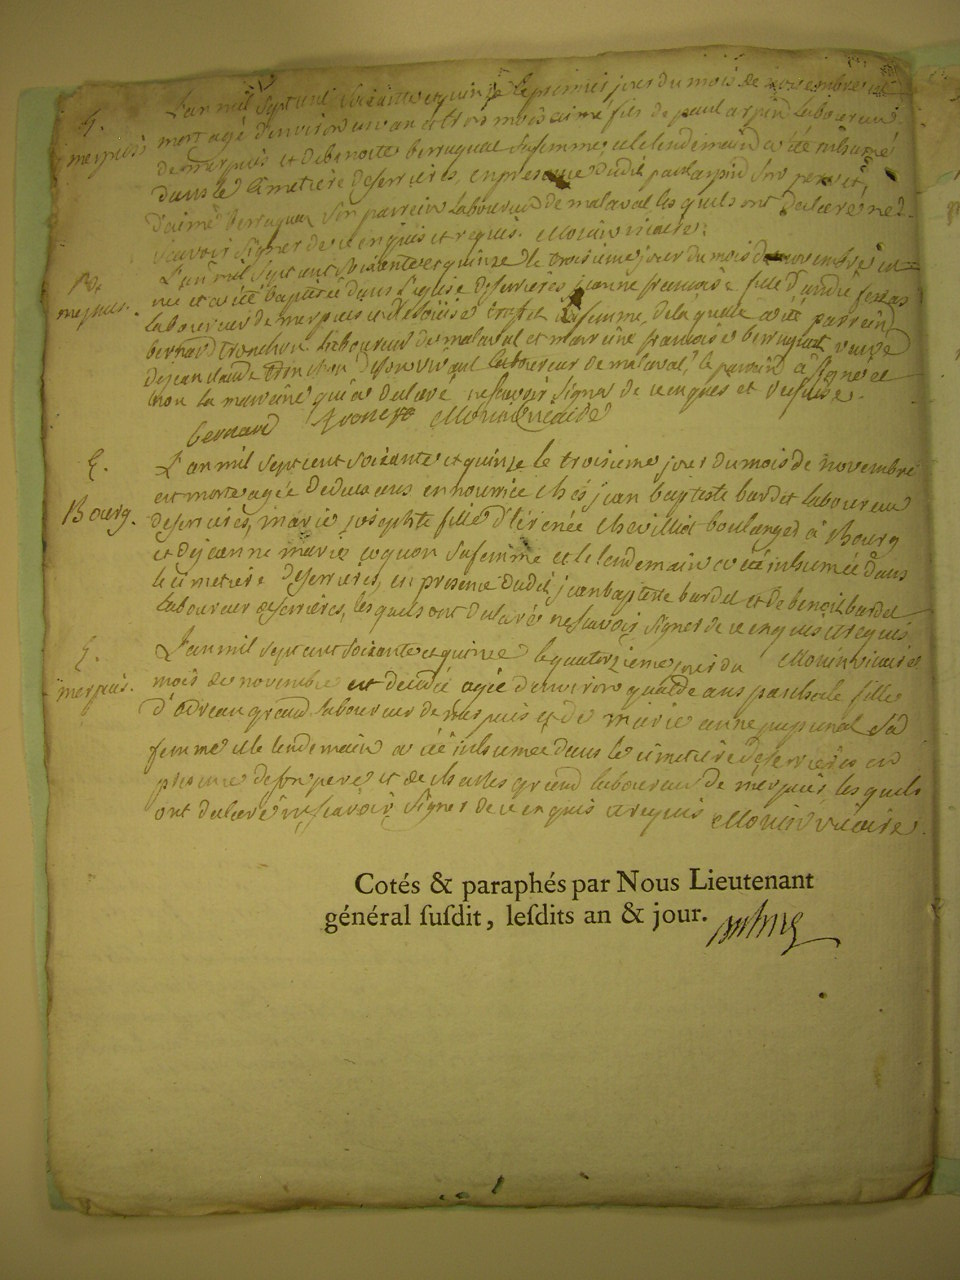 L'an mil sept cent soixante et quinze le premier jour du mois de novembre est
S.
merpuis
mort agé d'environ un an et trois mois aimé fils de paul arpin laboureur
de merpuis et de benoite berruquat sa femme et le lendemain a été inhumé
dans le cimetière deserrieres, en presence dudit paul arpin son pere et
d'aimé berruquat son parrein laboureur de malaval les quels ont declare ne
scavoir signer de ce enquis et requis. Morin vicaire.
L'an mil sept cent soixante et quinze le troisieme jour du mois de novembre est
merpuis.
née et a été baptisée dans l'eglise deserrieres jeanne francoise fille d'andre
laboureur de merpuis et de sa femme, de laquelle a été parrein
bernard tronchon laboureur de malaval et marreine francoise berruquat veuve
de jean claude tronchon de son vivant laboureur de malaval, le parrain a signé et
non la marreine qui a declaré ne scavoir signer de ce enquis et requise.
bernard Morin vicaire
S.
L'an mil sept cent soixante et quinze le troisieme jour du mois de novembre
est morte agée de deux ans en nourrice chés jean baptiste bardet laboureur
Bourg.
deserrieres, marie josephte fille d'irénée chevilliat boulanger à Bourg
et de jeanne marie coquon sa femme et le lendemain a été inhumée dans
le cimetiere deserrieres, en presence dudit jean baptiste bardet et de benoit bardet
laboureur deserrieres, les quels ont declaré ne scavoir signer de ce enquis et requis
Morin vicaire
S.
L'an mil sept cent soixante et quinze le quatorzieme jour du
merpuis.
mois de novembre est decedée agée d'environ quatre ans pachale fille
grand laboureur de merpuis et de marie anne sa
femme et le lendemain a été inhumée dans le cimetiere deserrieres en
presence de son pere et de charles grand laboureur de merpuis, les quels
ont declaré ne scavoir signer de ce enquis et requis Morin vicaire.
Cotés & paraphés par Nous Lieutenant
général ſuſdit, leſdits an & jour.